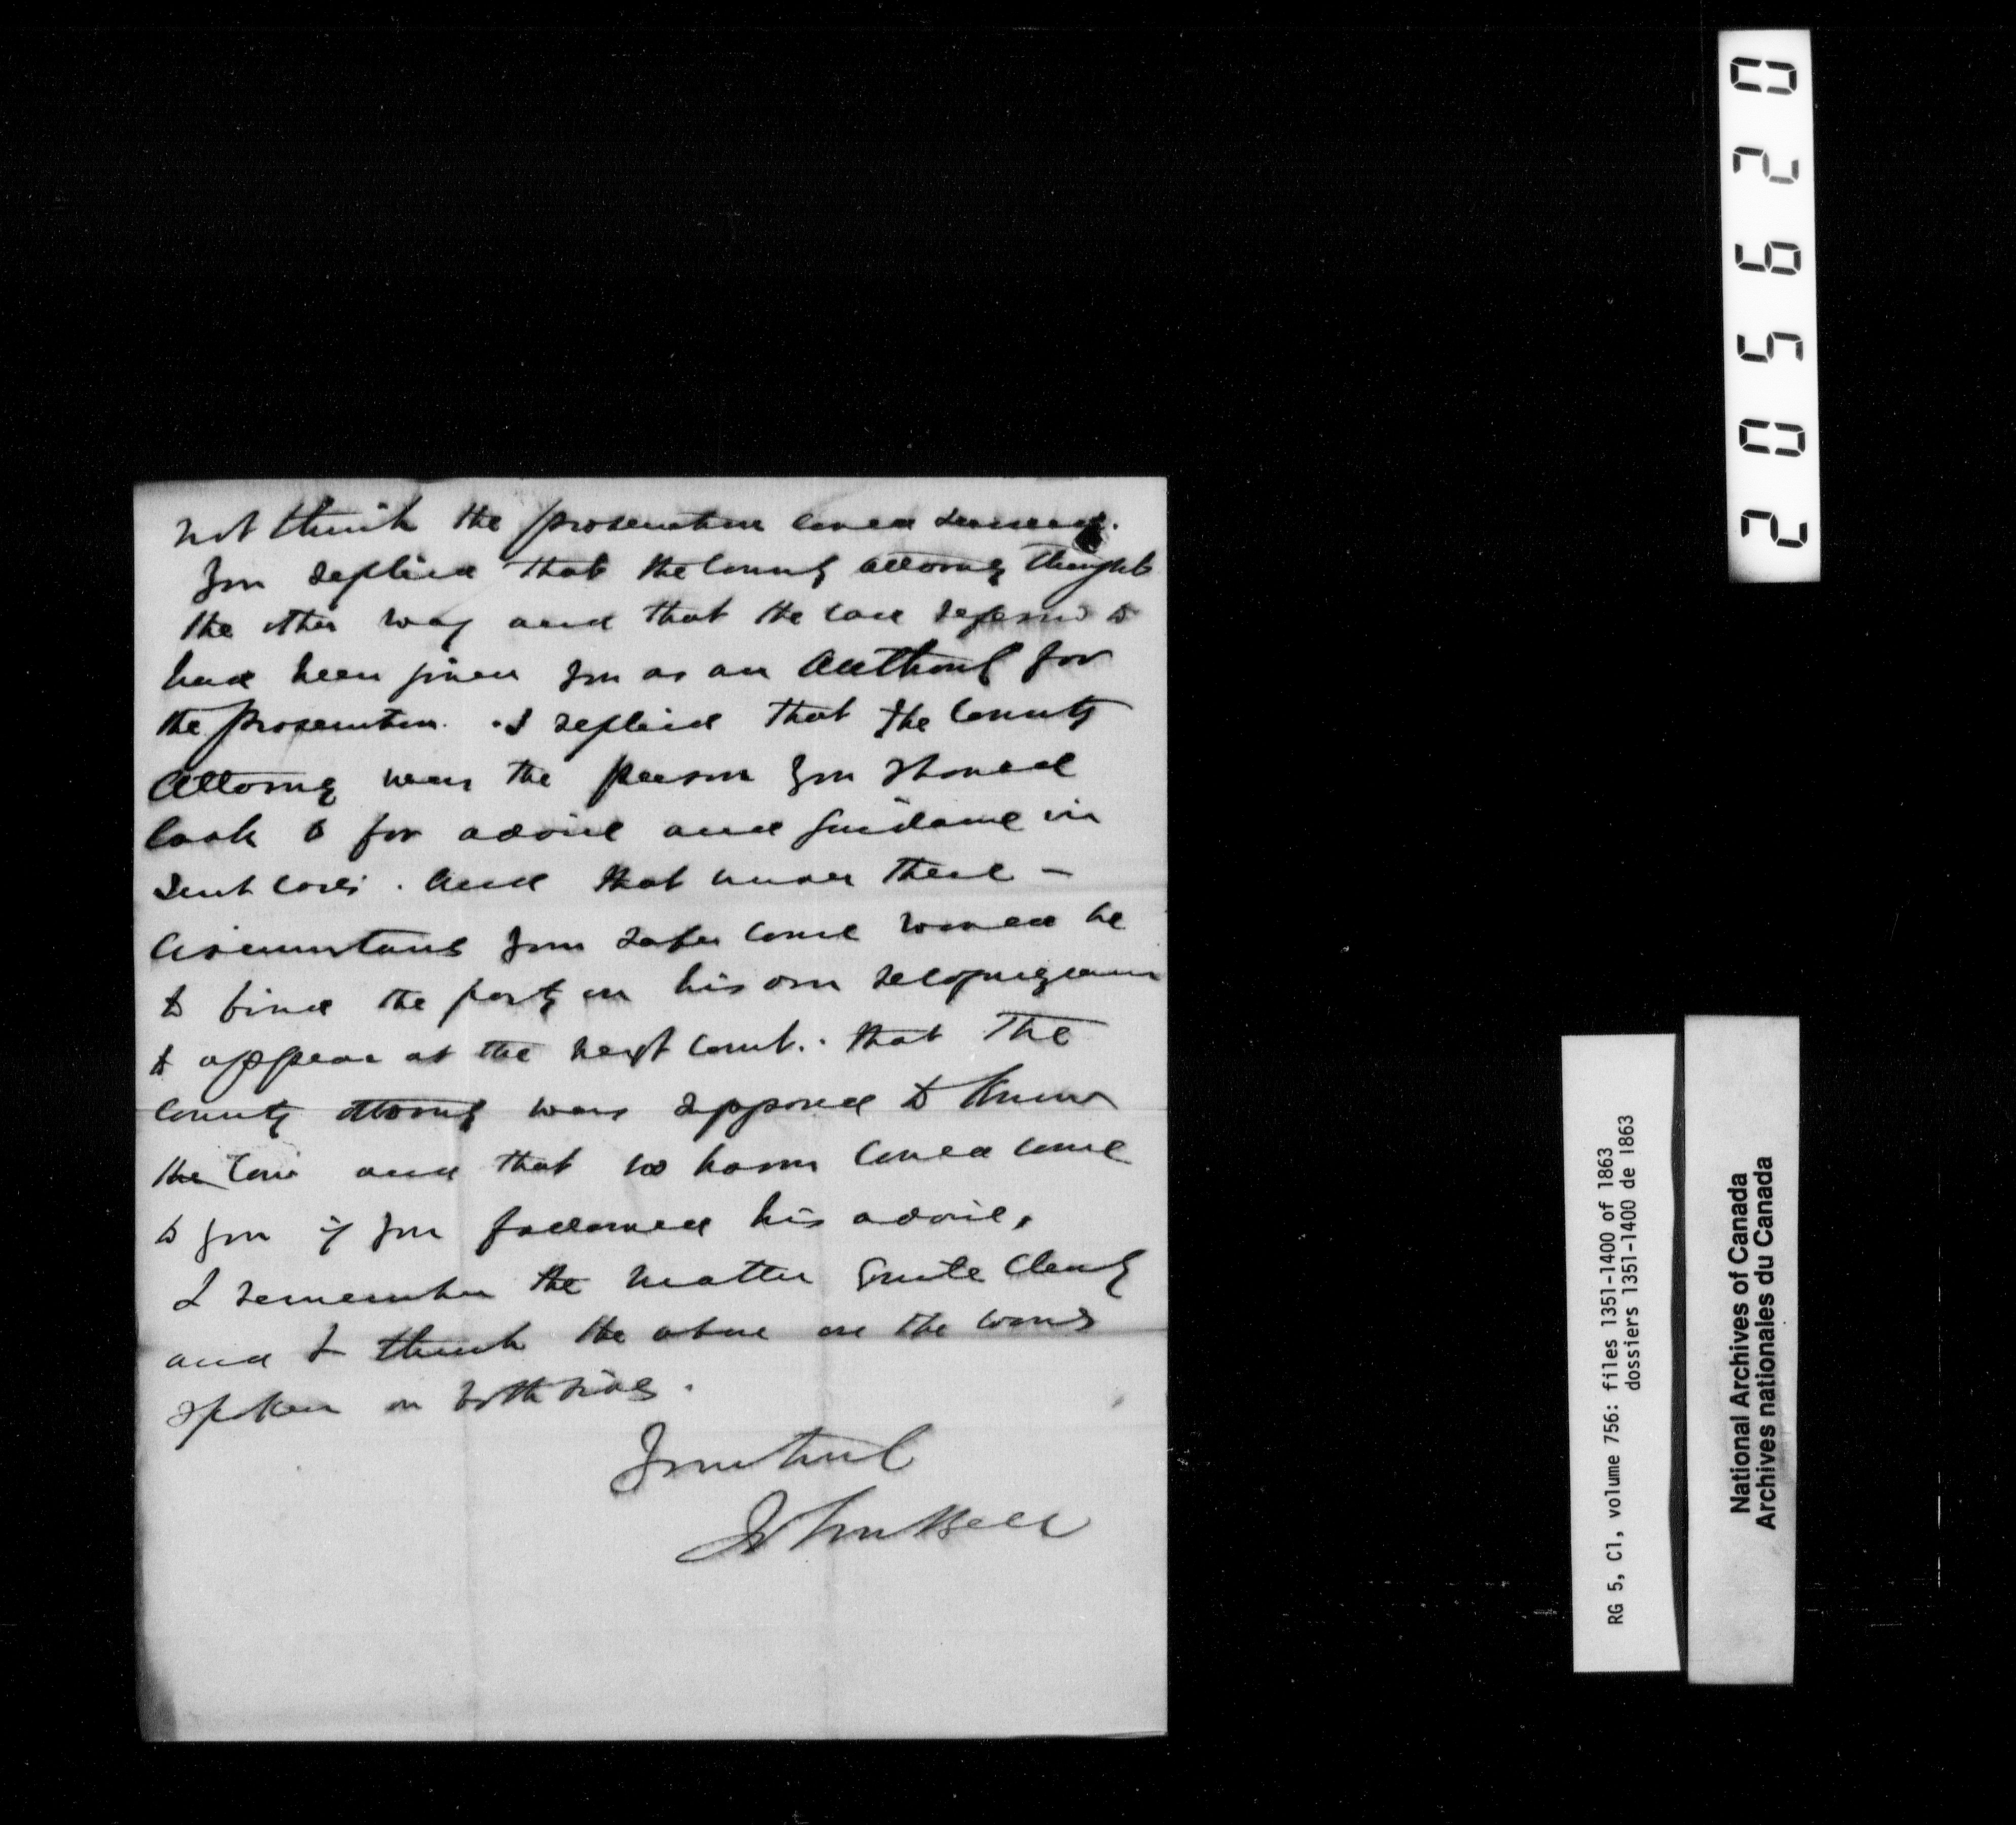 not think the prosecution could succeed.
You replied that the County Attorney thought
the other way and that the case referred to
had been given you as an Authority for
the prosecution. I replied that the County
Attorney was the person you should
look to for advice and guidance in
such cases. And that under these –
Circumstances your safer course would be
to bind the party on his own recognizance
to appear at the next Court. that the
County Attorney was supposed to know
the law and that no harm could come
to you if you followed his advice,
I remember the matter quite clearly
and I think the above are the words
spoken on both sides.
Yours truly
John Bell
205620
RG 5, C1, volume 756: files 1351-1400 of 1863
dossiers 1351-1400 de 1863
National Archives of Canada
Archives nationales du Canada